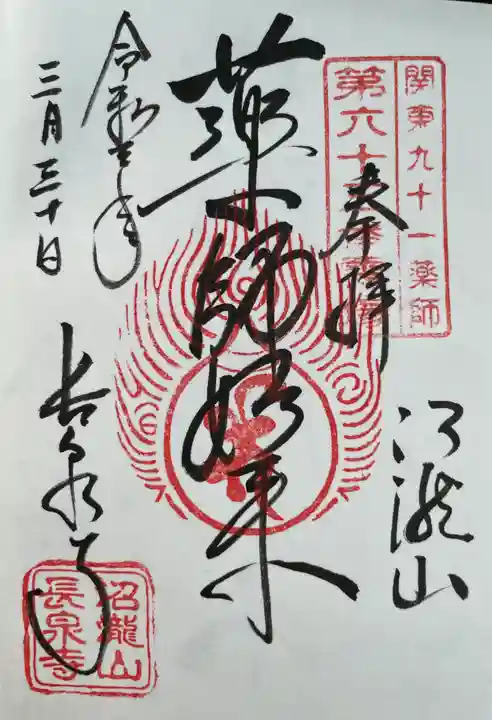 関東九十一薬師
第六十
奉拝
瀧山
薬師如来
令和 年
三月三十日
長泉寺
瀧山
長泉寺